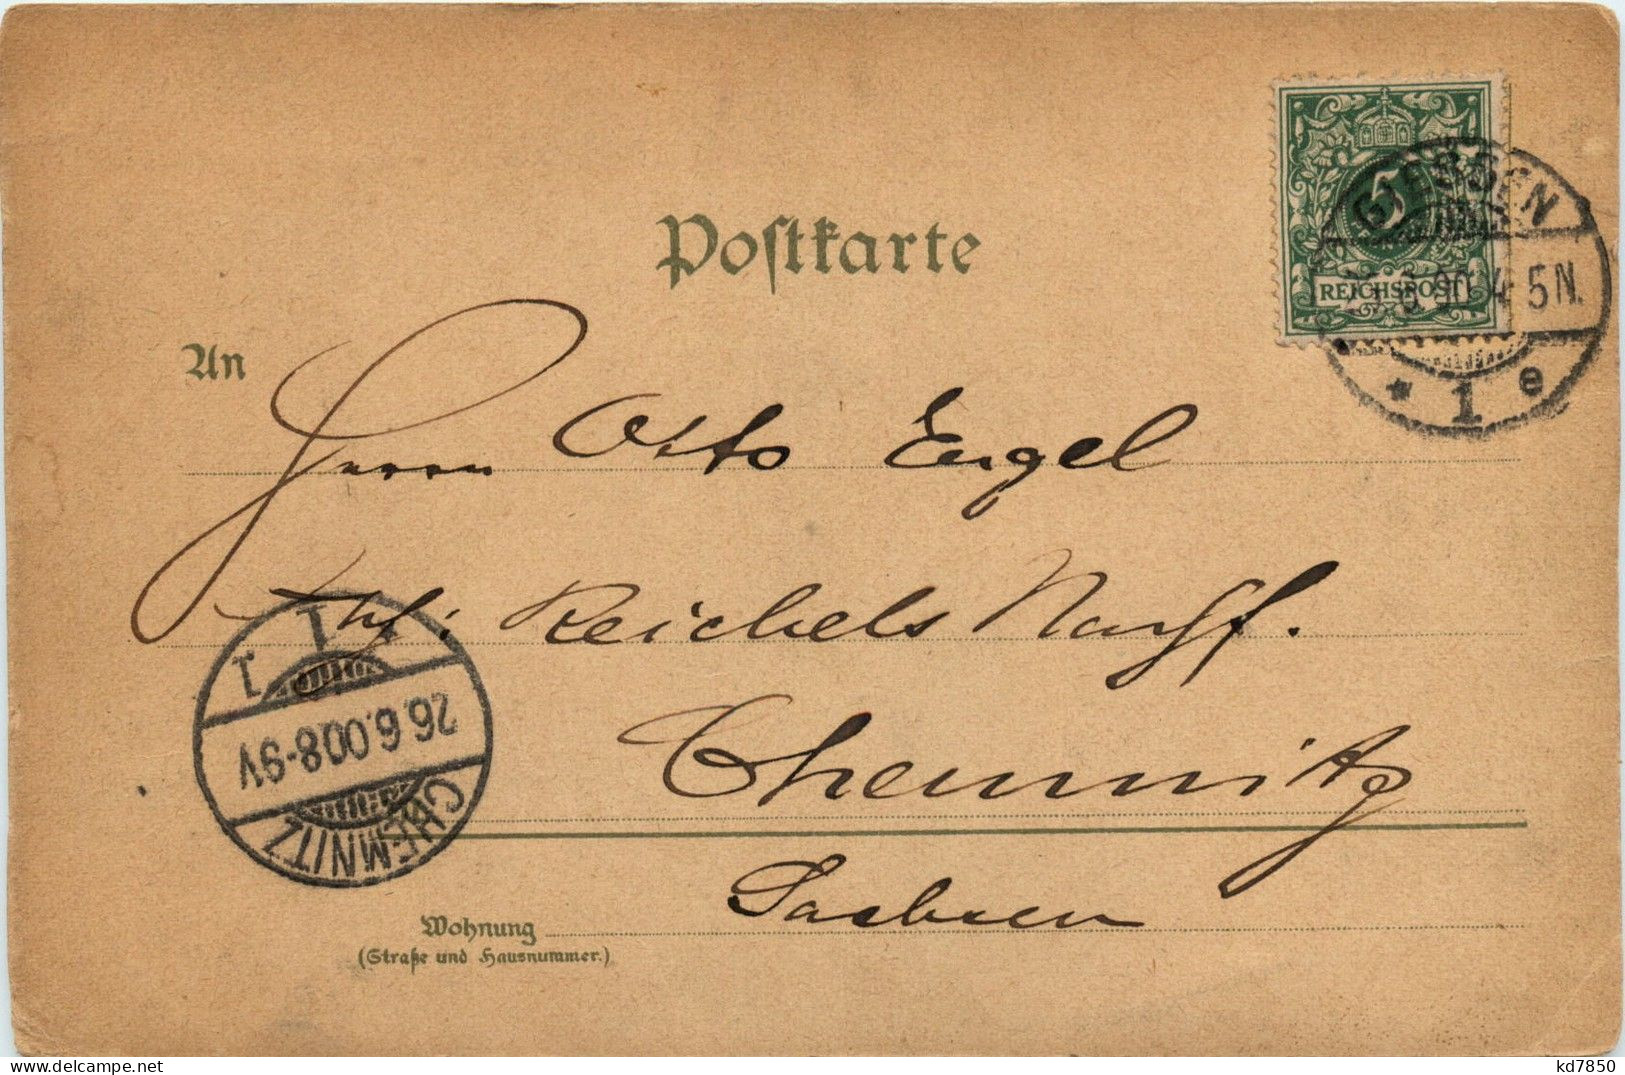 Postkarte
5
REICHSPOST
GIESSEN
4 5N.
* 1 e
An
Herrn Otto Engel
Reichels Nachf.
Chemnitz
Sachsen
CHEMNITZ
26.6.00.8-9V
1
1
Wohnung
(Straße und Hausnummer.)
kd7850